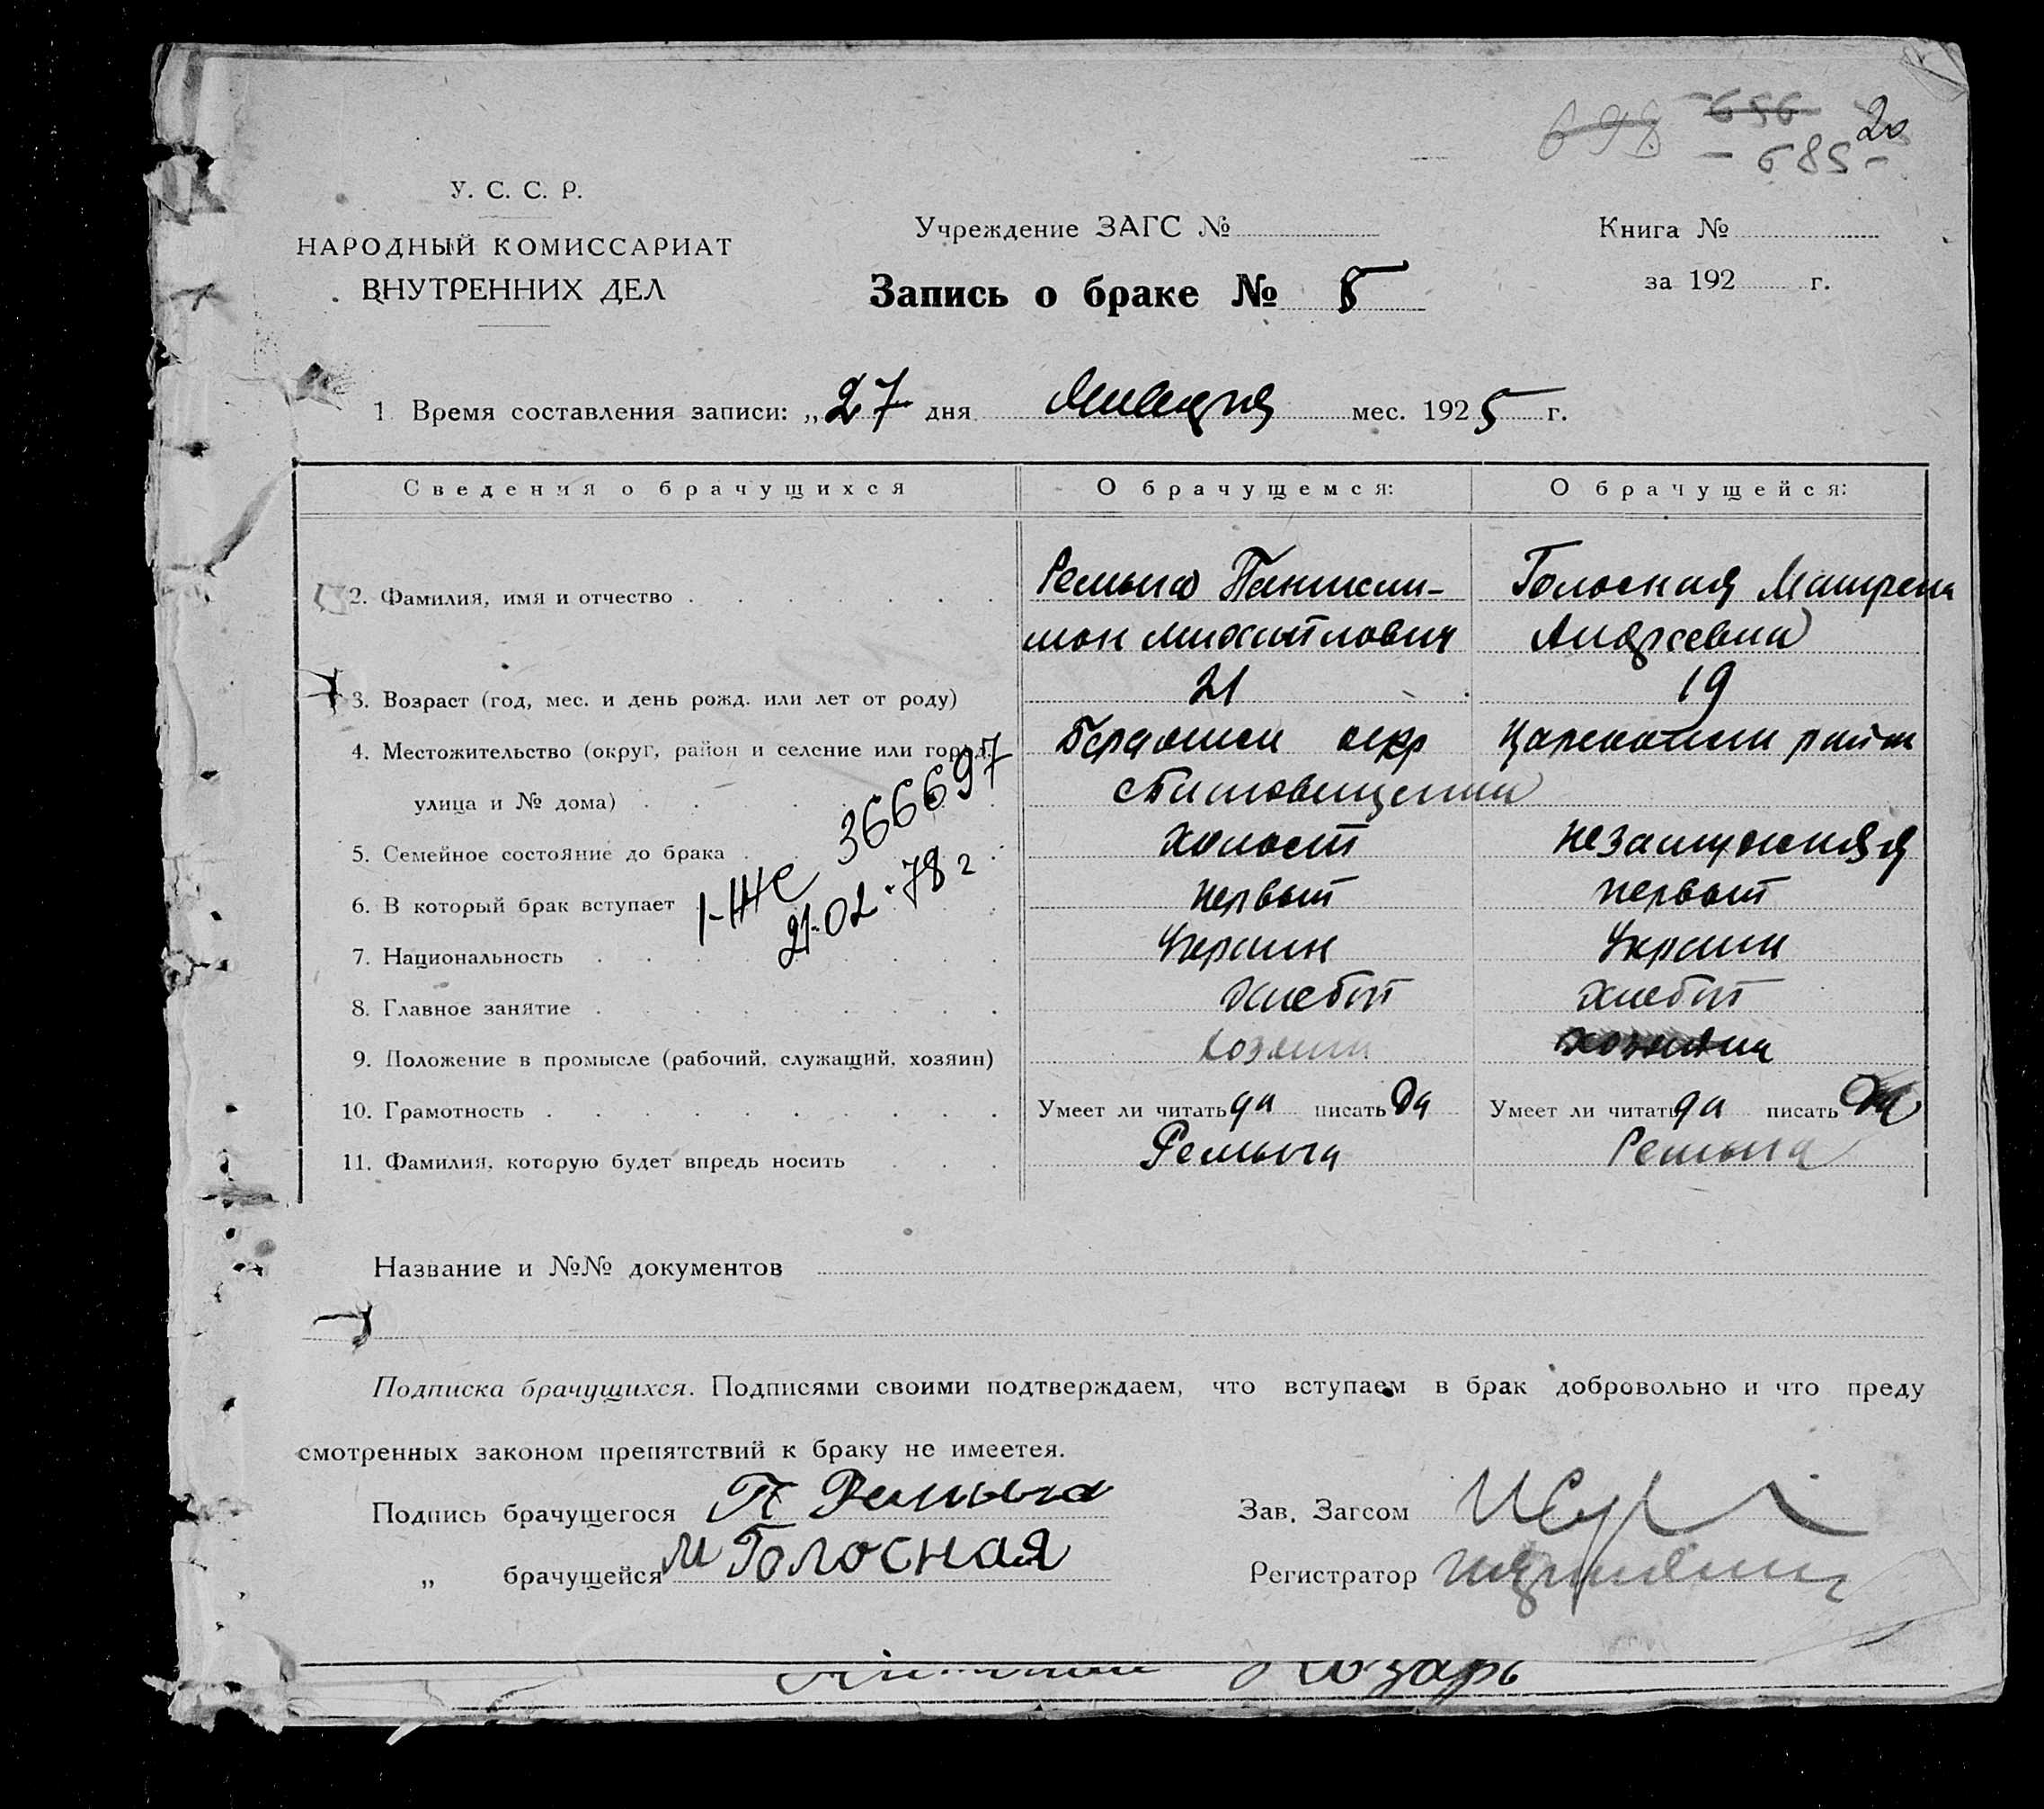 698 696 20
- 685 -
У. С. С. Р.
НАРОДНЫЙ КОМИССАРИАТ
ВНУТРЕННИХ ДЕЛ
Учреждение ЗАГС №
Книга №
Запись о браке № 5
за 192 г.
1. Время составления записи: „27 дня Января мес. 1925 г.
Сведения о брачущихся О брачущемся: О брачущейся:
2. Фамилия, имя и отчество Голосная Матрена
мон Михайлович Андреевна
3. Возраст (год, мес. и день рожд. или лет от роду) 21 19
4. Местожительство (округ, район и селение или город, окр район
улица и № дома)
5. Семейное состояние до брака холост незамужняя
6. В который брак вступает первый первый
7. Национальность Украин Украин
8. Главное занятие Хлебоп Хлебоп
9. Положение в промысле (рабочий, служащий, хозяин) хозяин
10. Грамотность Умеет ли читать да писать да Умеет ли читать да писать да
11. Фамилия, которую будет впредь носить Ремыга Ремыга
I-ЖС 366697
21.02.78 г
Название и №№ документов
Подписка брачущихся. Подписями своими подтверждаем, что вступаем в брак добровольно и что преду
смотренных законом препятствий к браку не имеетея.
Подпись брачущегося П Ремыга
Зав. Загсом
„ брачущейся М Голосная
Регистратор
Козарь